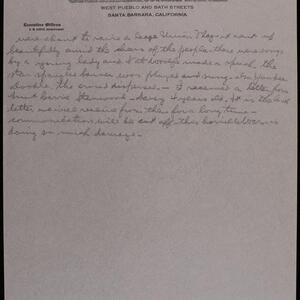 WEST PUEBLO AND BATH STREETS
SANTA BARBARA, CALIFORNIA
Executive Offices
were about to raise a large Union. They it went up
beautifully amid the cheers of the people. there were songs
by a young lady and made a speech, the
star spangled banner was played and sung. also Yankee
doodle, the crowd dispersed. I received a letter from
Aunt 4 years old. it is the last
letter we will receive from them for a long time
communication will be cut off. this horrible War is
doing so much damage.